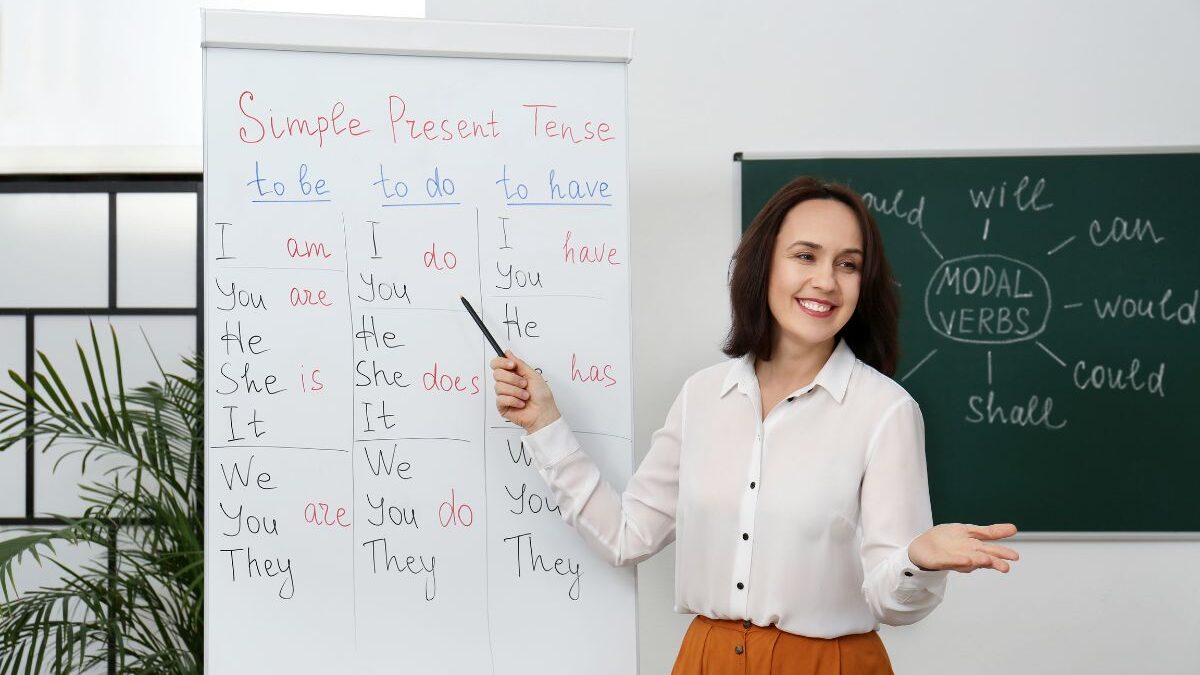 Simple Present Tense
to be
I am
You are
He
She is
It
We
You are
They
to do
I
do
You
He
She does
It
We
You do
They
to have
I
have
You
He
has
You
They
will
can
MODAL
VERBS
would
could
shall